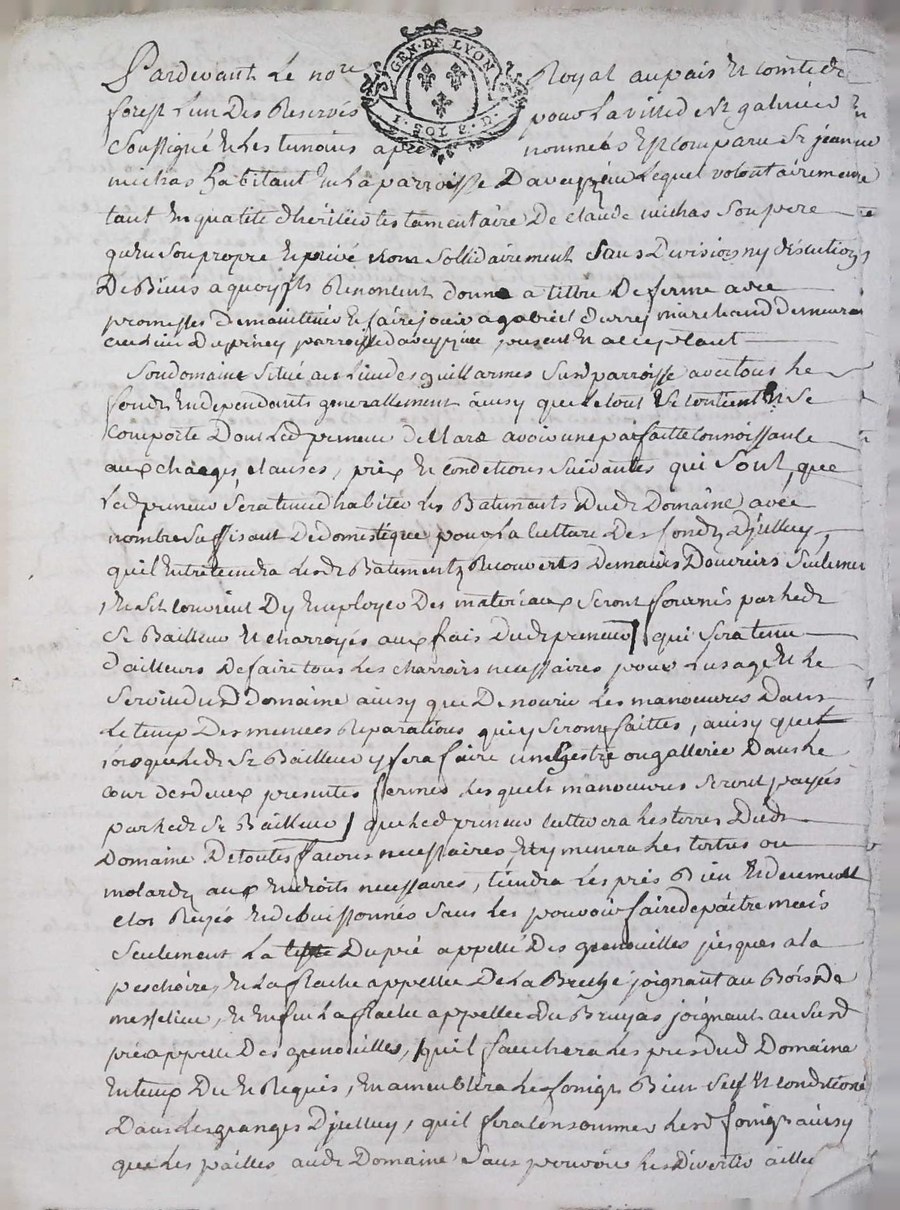 GEN·DE LYON
1·SOL 8·D·
Pardevant Le no.re Royal au païs Et comté de
forest L'un Des Reservés pour La ville de St galmier
Soussigné et Les temoins après nommés Est comparu Sr jeanne
michas habitant En La parroisse D'aveyzieu Lequel volontairement
tant En qualité d'hèritier testamentaire De claude michas Son pere
qu'en Son propre et privé nom Sollidairement Sans Division ny discution
De Biens a quoy ils Renoncent donne a tiltre De ferme avec
promesses De maintenir et faire jouir a gabriel marchand Demeurant
au Lieu Du parroisse d'aveyzieu present Et acceptant
Son domaine Situé au Lieu des guillarmes Susd parroisse avec tous Les
fonds En dependants generallement ainsy que Le tout Se contient Et Se
Comporte Dont Led preneur declare avoir une parfaitte connoissance
aux charges, clauses, prix Et conditions Suivantes qui Sont, que
Led preneur Sera tenu d'habiter Les Batiments Dudt Domaine avec
nombre Suffisant De domestique pour La culture Des fonds D'jcelluy,
qu'il Entretiendra Lesdt Batiments Recouverts De mains D'ouvriers Seulement
Et S'il convient D'y Employer Des materiaux Seront fournis par Ledt
Sr Bailleur Et charroyés aux frais Dudt preneur, qui Sera tenu
D'ailleurs De faire tous Les charrois necessaires pour L'usage Et Le
Service dud Domaine ainsy que De nourir Les manoeuvres Dans
Le temp Des menues Reparations qui y Seront faittes, ainsy que
Lorsque Ledt Sr Bailleur y fera faire une ou gallerie Dans Le
cour des deux presentes fermes Lesquels manoeuvres Seront payés
par Ledt Sr Bailleur, que Led preneur cultivera Les terres Dudt
Domaine De toutes facons necessaires, Et y minera Les tertres ou
molards aux Endroits necessaires, tiendra Les prés Bien Et deuement
clos Et debuissonnés Sans Les pouvoir faire depaitre mais
Seulement La Du pré appellé Des grenouilles jusques a la
peschoire, Et La flache appellée De La joignant au Bois De
Et Enfin La flache appellée Du Bruyas joignant au Susd
pré appellé Des grenouilles, qu'il fauchera Les pres dud Domaine
En temp Du Et Requis, En ameublira Les foings Bien Secs Et conditionés
Dans Les granges D'jcelluy, qu'il fera consommer Lesd foings ainsy
que Les pailles audt Domaine Sans pouvoir Les Divertir